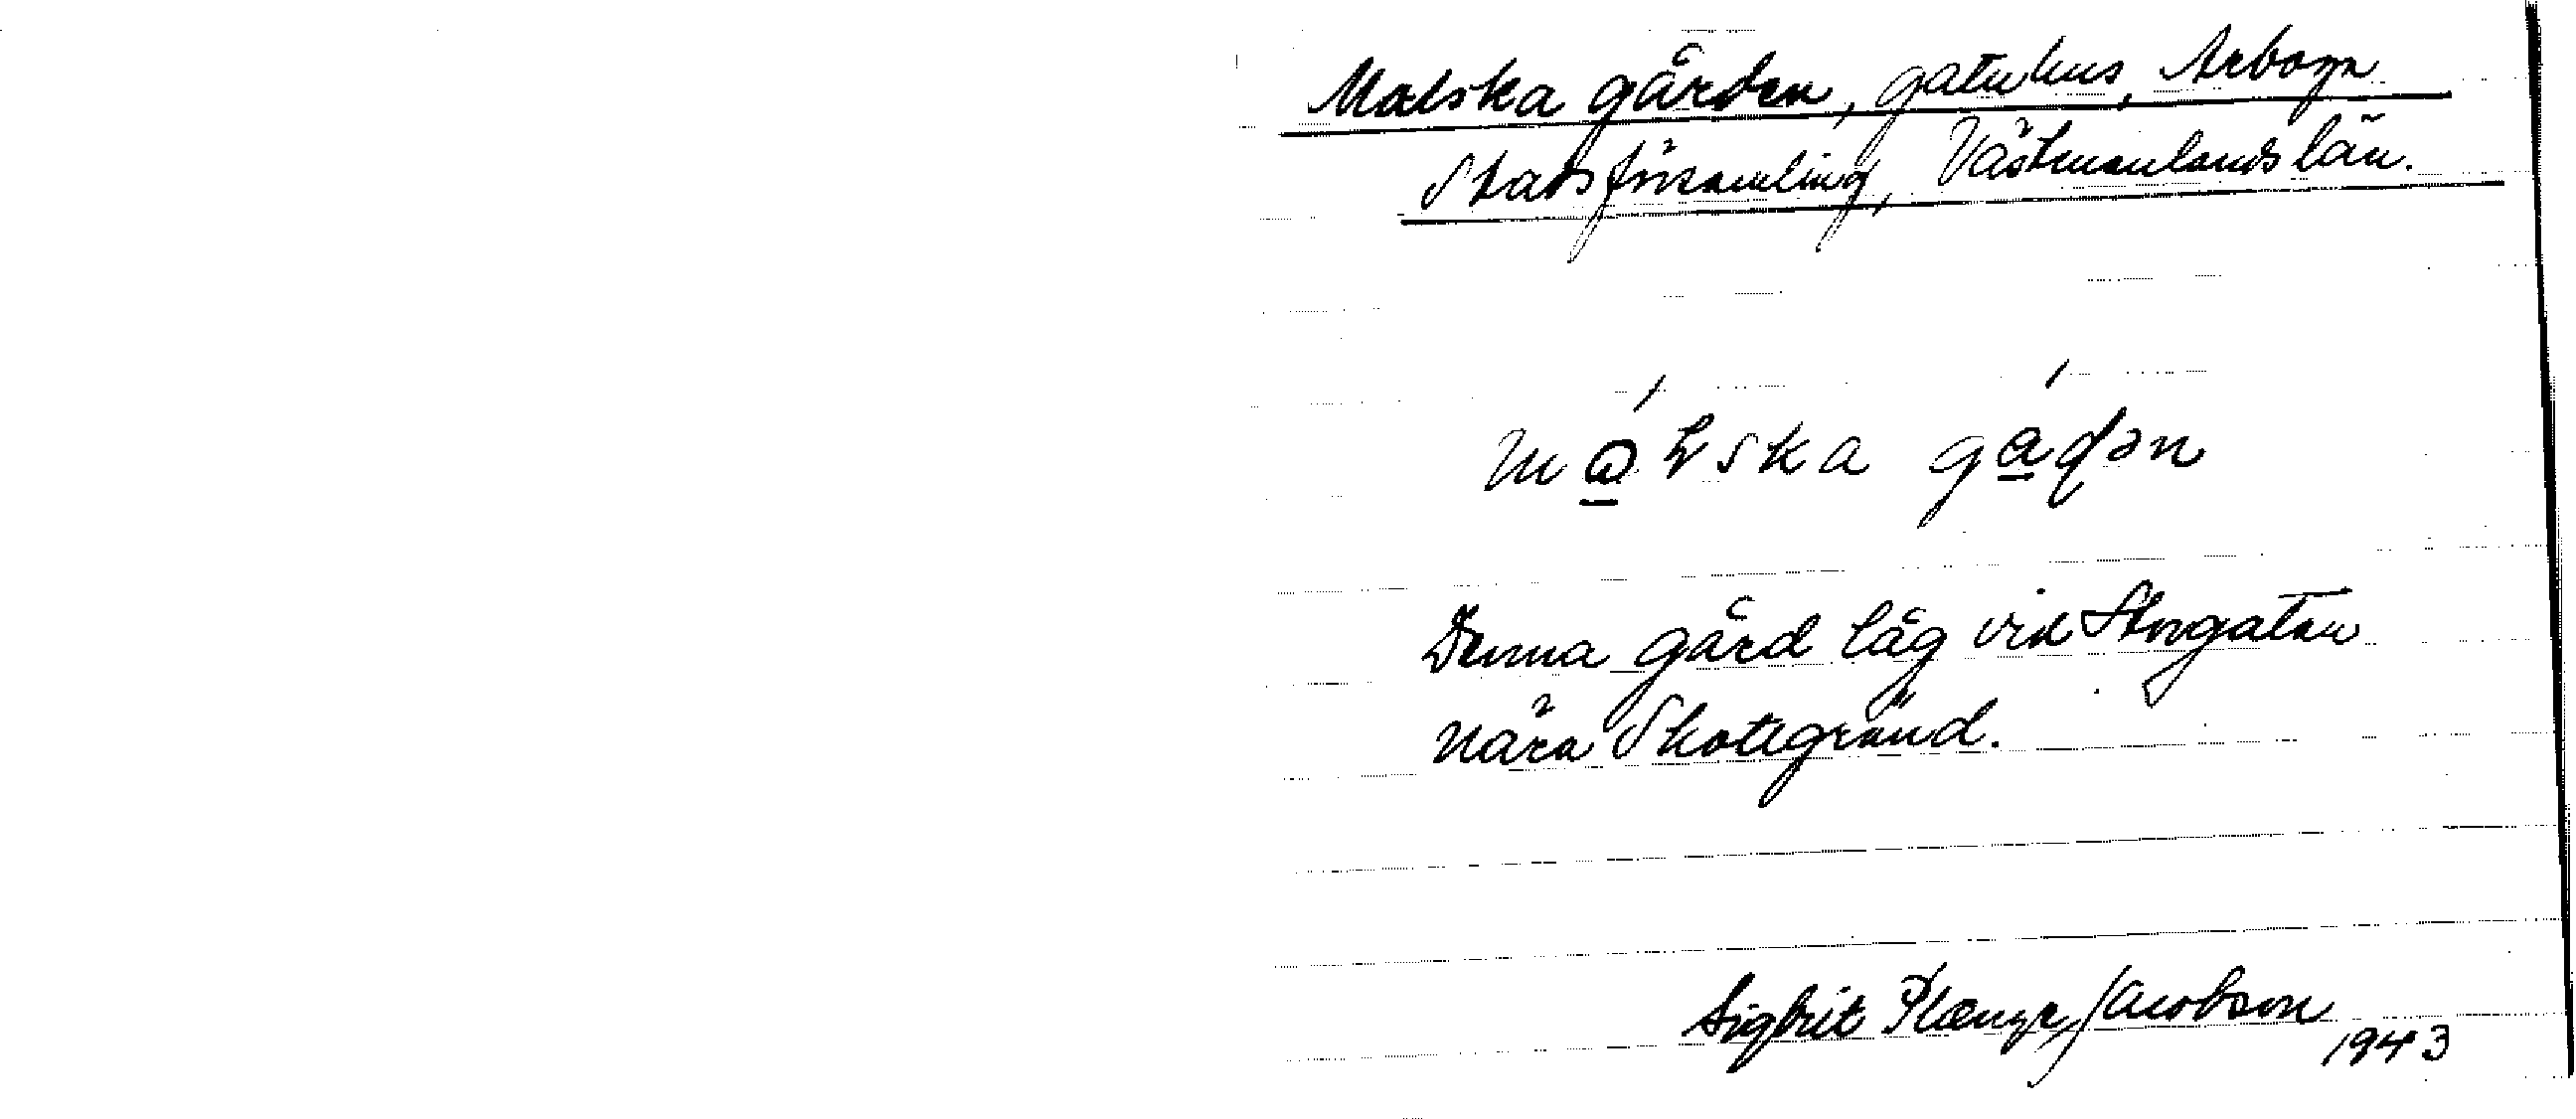 Malska gården, gatuhus, Arboga
Stadsförsamling, Västmanlands län.
Denna gård låg vid Storgatan
nära Skotegränd.
Sigbrit Plænge Jacobson
1943